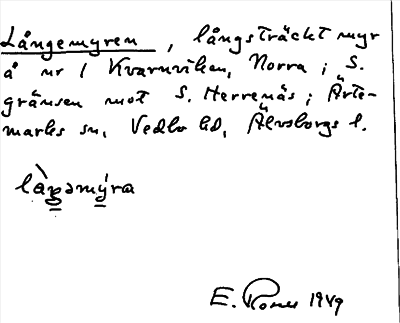 Långemyren, långsträckt myr
å nr 1 Kvarnviken, Norra; S.
gränsen mot S. Herrenäs; Ärte-
marks sn, Vedbo hd, Älvsborgs l.
E. 1949